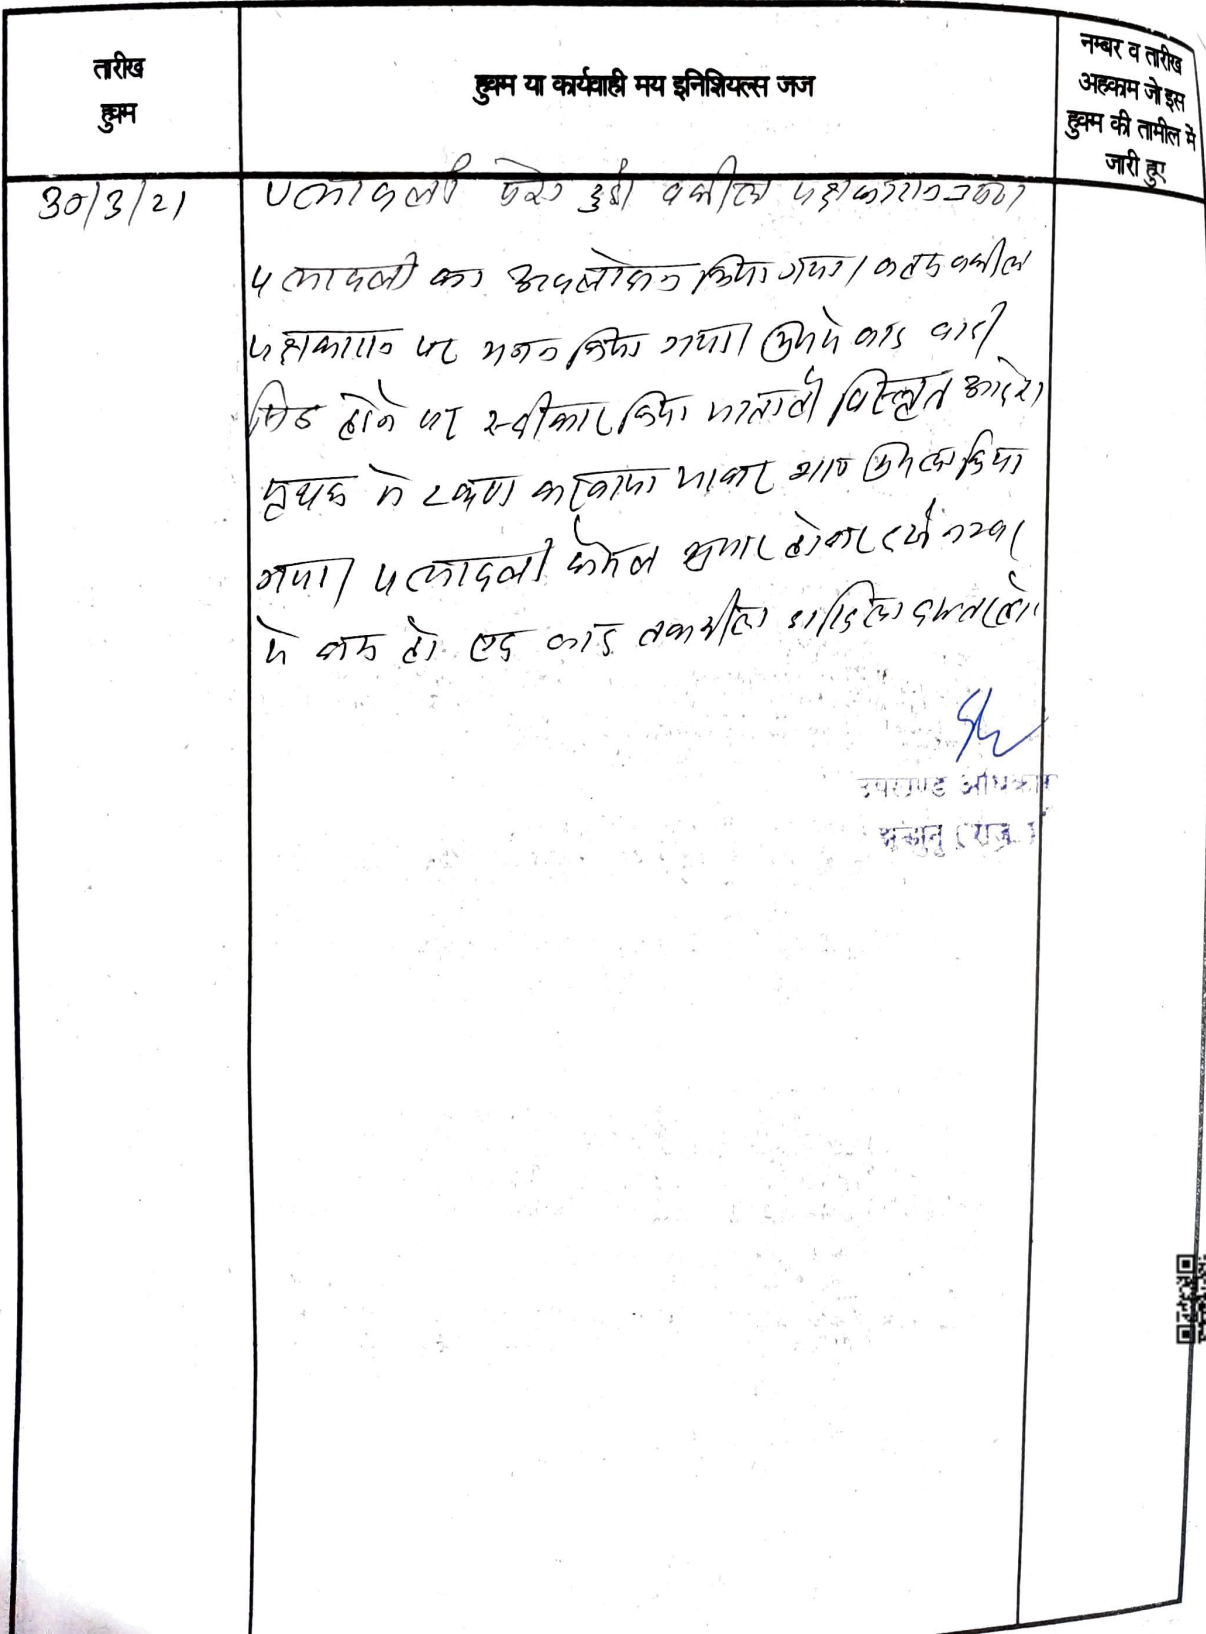 तारीख
हुक्म
हुक्म या कार्यवाही मय इनिशियल्स जज
नम्बर व तारीख
अहकाम जो इस
हुक्म की तामील में
जारी हुए
30/3/21
पत्रावली पेश हुई। वकील पक्षकारान
पत्रावली का अवलोकन किया गया। वकील
पक्षकारान पर मनन किया गया। वाद वादी
सिद्ध होने पर स्वीकार किया जाता है। विस्तृत आदेश
पृथक से टंकण करवाया जाकर किया
गया। पत्रावली फैसल शुमार होकर दर्ज नम्बर
से कम हो दाखिल दफ्तर हो।
उपखण्ड अधिकारी
झुन्झुनू (राज.)